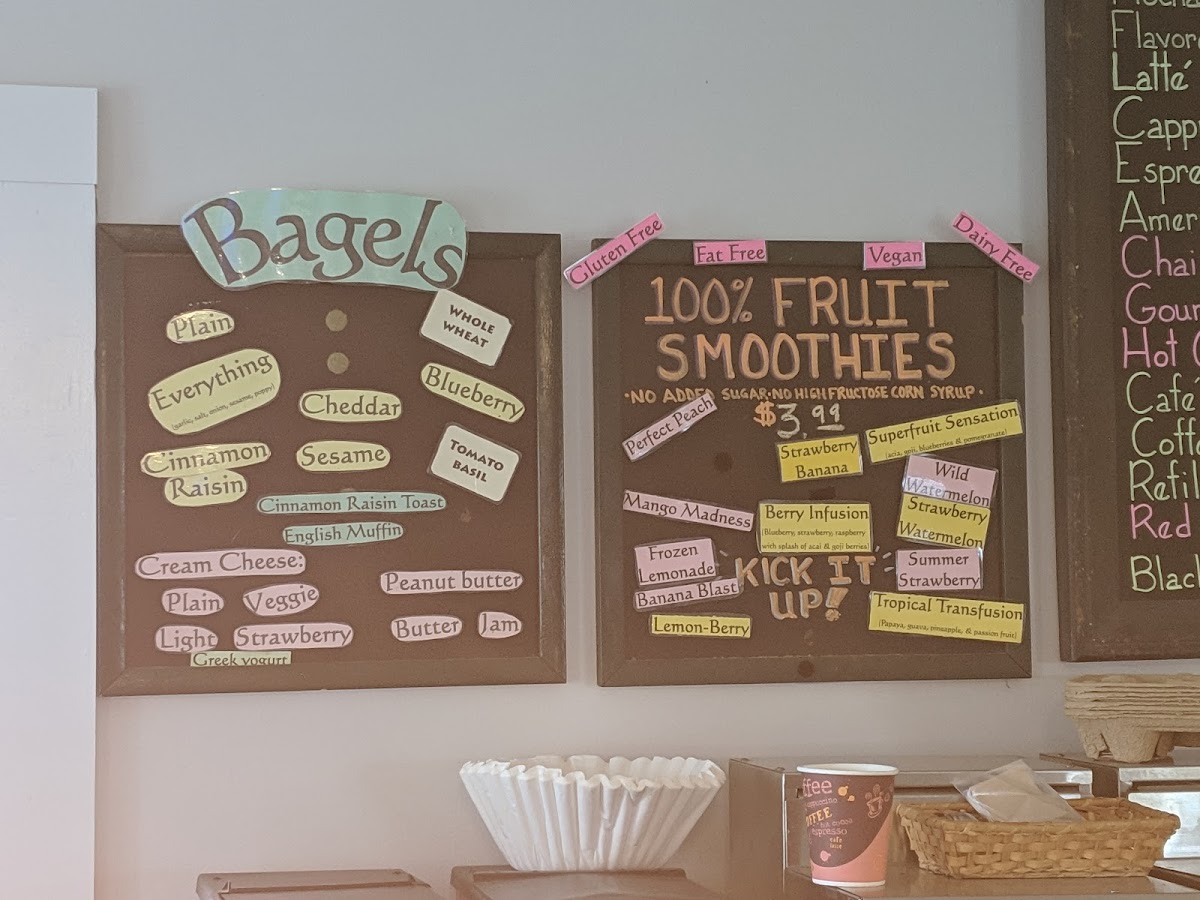 Bagels
Plain
WHOLE
WHEAT
Everything
(garlic, salt, onion, sesame, poppy)
Cheddar
Blueberry
Cinnamon
Raisin
Sesame
TOMATO
BASIL
Cinnamon Raisin Toast
English Muffin
Cream Cheese:
Plain
Veggie
Light
Strawberry
Greek yogurt
Peanut butter
Butter
Jam
Gluten Free
Fat Free
Vegan
Dairy Free
100% FRUIT
SMOOTHIES
•NO ADDED SUGAR•NO HIGH FRUCTOSE CORN SYRUP•
$3.99
Perfect Peach
Strawberry
Banana
Superfruit Sensation
(acia, goji, blueberries & pomegranate)
Wild
Watermelon
Mango Madness
Berry Infusion
(Blueberry, strawberry, raspberry
with splash of acai & goji berries)
Strawberry
Watermelon
Frozen
Lemonade
Summer
Strawberry
Banana Blast
KICK IT
UP!
Lemon-Berry
Tropical Transfusion
(Papaya, guava, pineapple, & passion fruit)
Flavor
Latté
Capp
Espre
Amer
Chai
Gour
Hot
Café
Coff
Refil
Red
Blac
ffee
OFFEE
espresso